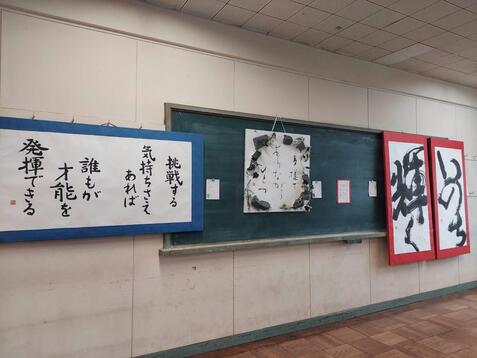 挑戦する
気持ちさえ
あれば
誰もが
才能を
発揮できる
いのち
輝く